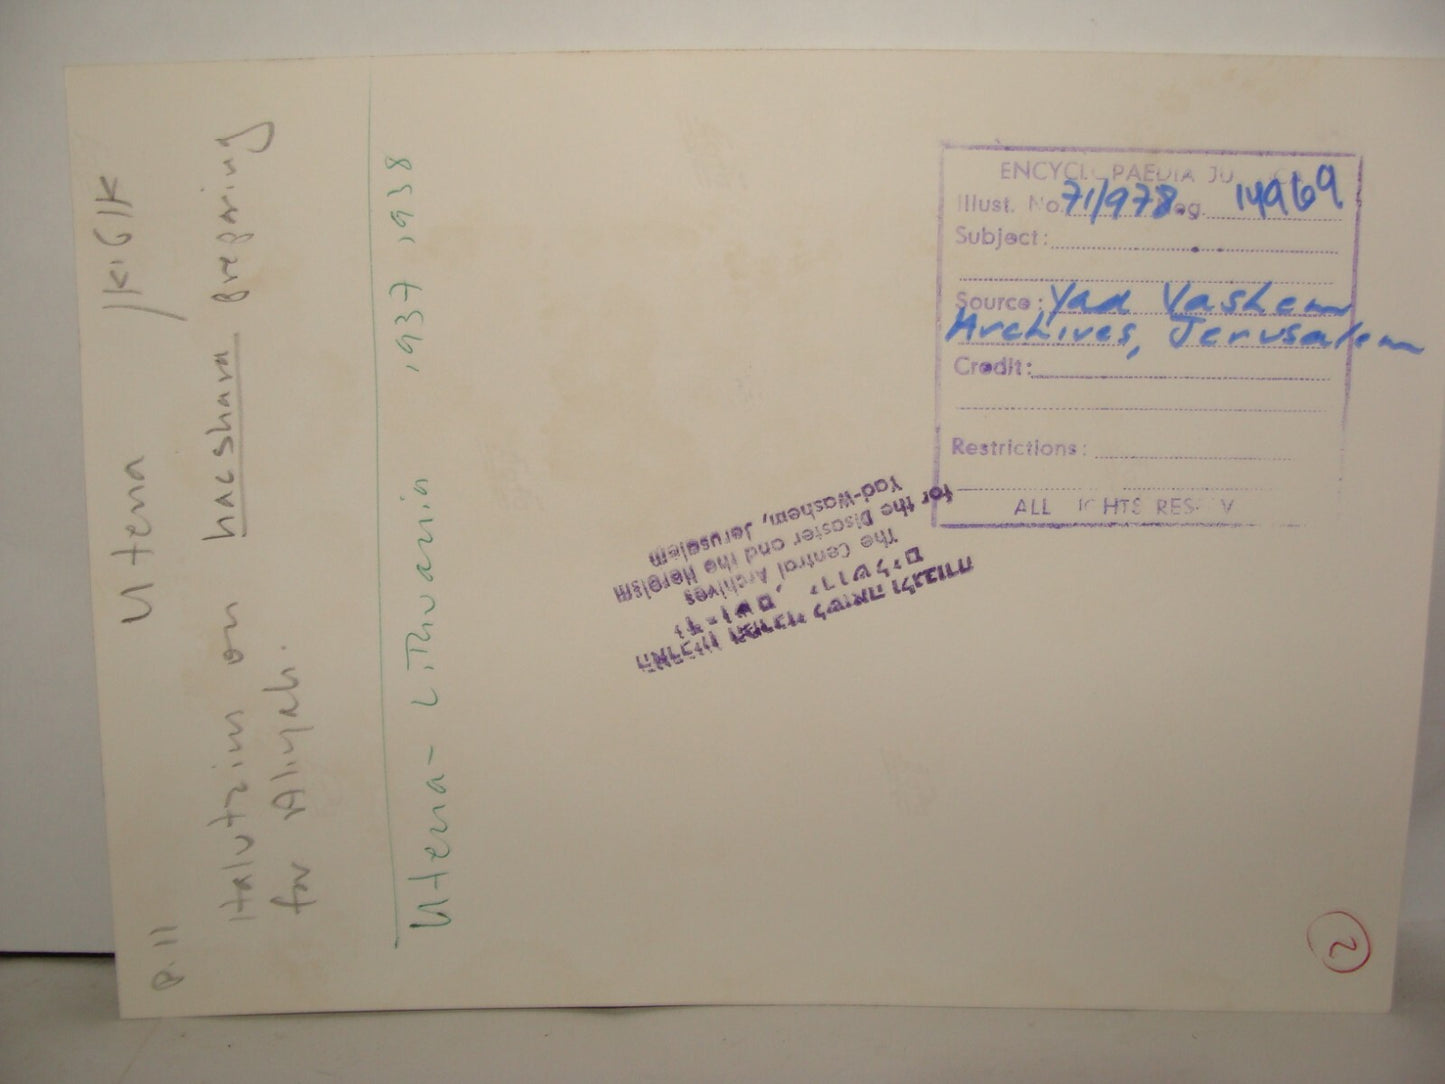 p. 11
Utena
Halutzim on hacshara preparing
for Aliyah.
Utena - Lithuania 1937, 1938
ENCYCLOPAEDIA JU
Illust. No. 71/978 eg. 14969
Subject:
Source: Yad Vashem
Archives, Jerusalem
Credit:
Restrictions:
ALL RIGHTS RES V
הארכיון המרכזי לשואה ולגבורה
יד-ושם, ירושלים
The Central Archives
for the Disaster and the Heroism
Yad-Washem, Jerusalem
2